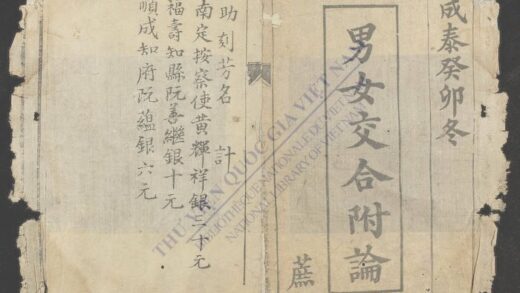 成泰癸卯冬
男女交合附論
蔗
助刻芳名 計
南定按察使黃輝祥銀三十元
福壽知縣阮善繼銀十元
順成知府阮蘊銀六元
THƯ VIỆN QUỐC GIA VIỆT NAM
BIBLIOTHÈQUE NATIONALE DU VIETNAM
NATIONAL LIBRARY OF VIETNAM